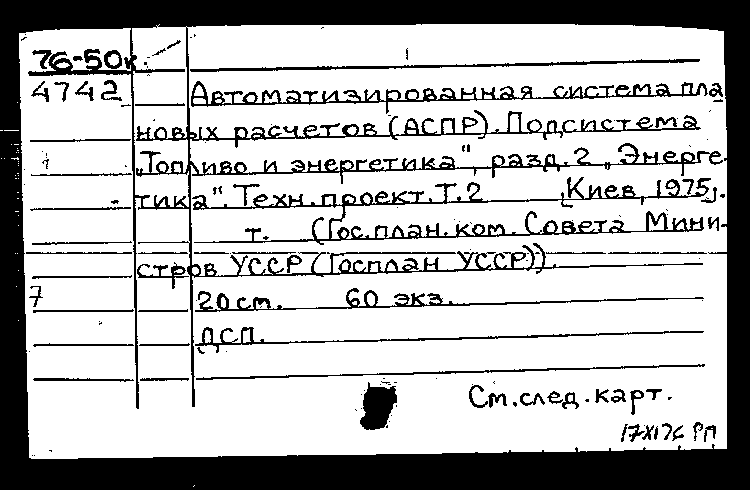 76-50к
4742 Автоматизированная система пла
новых расчетов (АСПР). Подсистема
„Топливо и энергетика", разд. 2 „Энерге-
тика". Техн. проект. Т. 2 [Киев, 1975].
т. (Гос. план. ком. Совета Мини-
стров УССР (Госплан УССР)).
7 20 см. 60 экз.
ДСП.
См. след. карт.
17XI76 РП